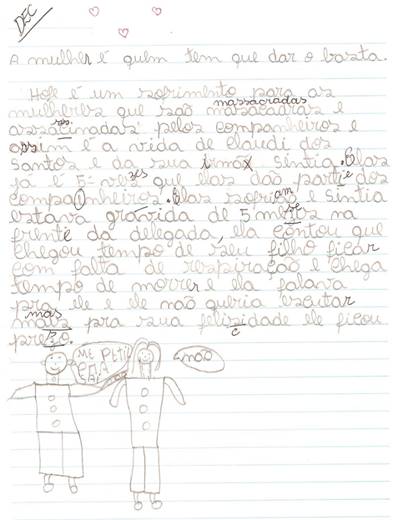 DEC
A mulher é quem tem que dar o basta.
Hoje é um sofrimento para as
massacradas
mulheres que são masacadas e
ss
assacinadas pelos companheiros e
assim é a vida de claudi dos
santos e da sua irmã sintia. Elas
zes
ja é 5= ves que elas dão parte dos
companheiros. Elas sofriam e sintia
estava gravida de 5 meses na
frente da delegada, ela contou que
chegou tempo de seu filho ficar
com falta de respiração e chega
tempo de morrer e ela falava
pra ele e ele não queria escutar
mas
mais pra sua felisidade ele ficou
c
preso.
ME PETI
CAÍ
SAI
não